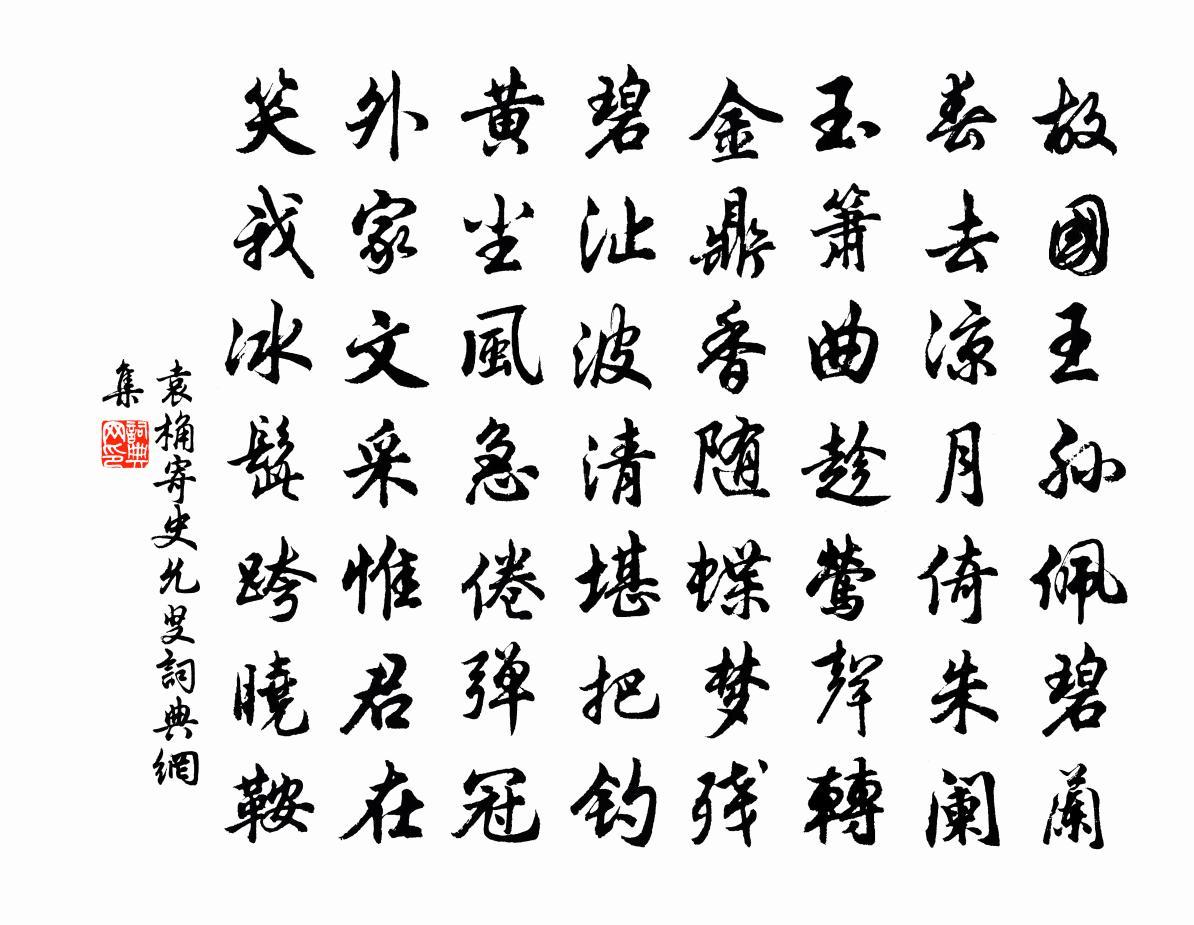 故國王孫佩碧蘭
春去凉月倚朱阑
玉簫曲趁鶯聲轉
金鼎香随蝶梦残
碧沚波清堪把钓
黄尘風急倦弹冠
外家文采惟君在
笑我冰髭跨曉鞍
袁桷寄史允叟詞典網
集
詞典网印